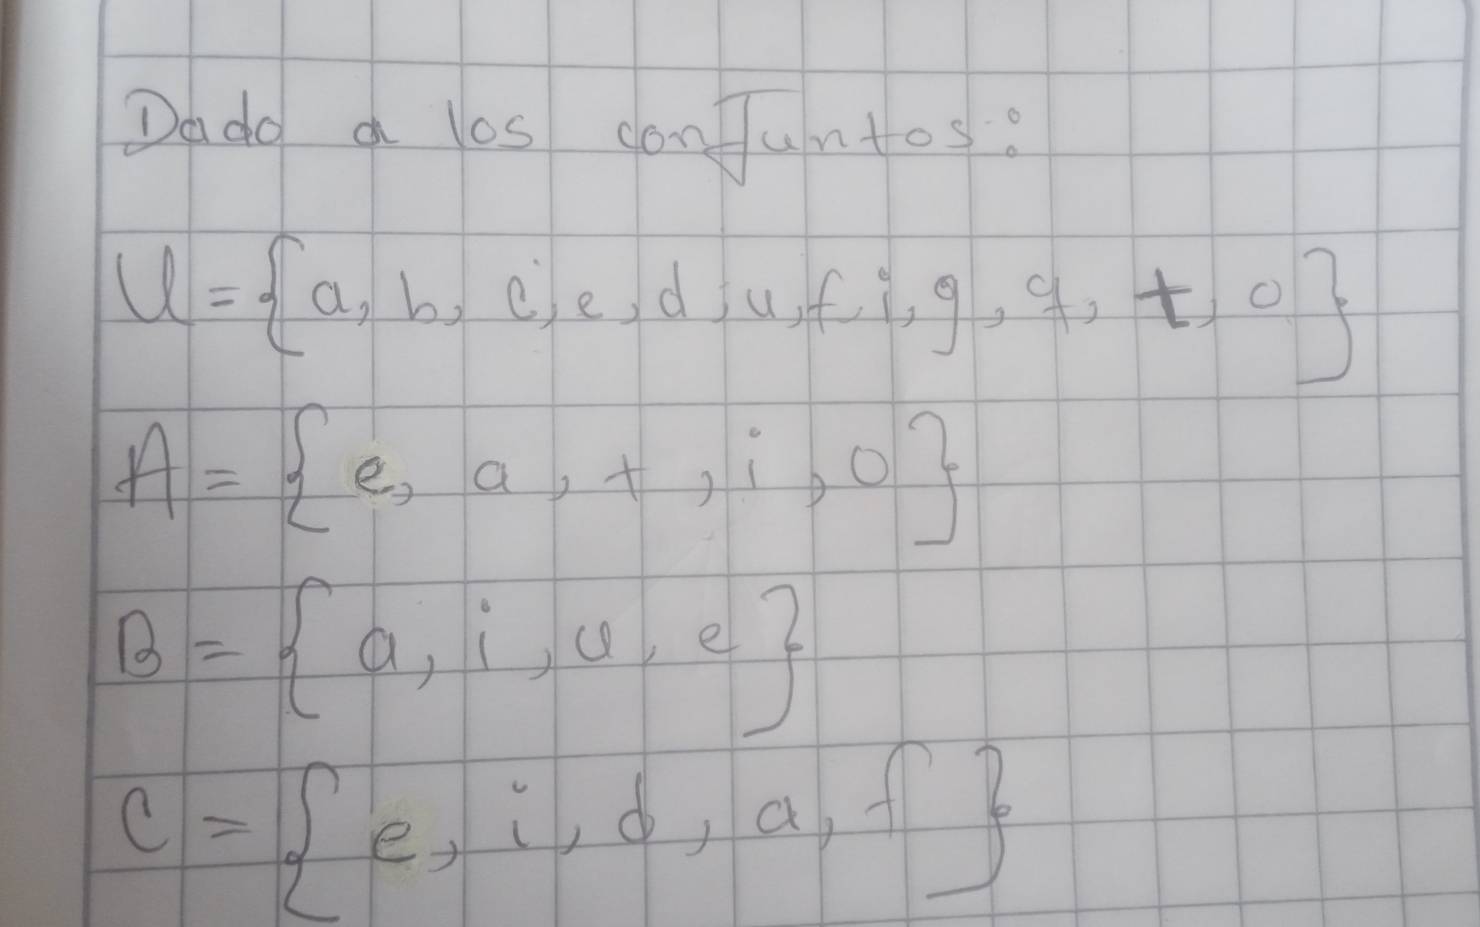 Dado a los conJuntos:
U = {a, b, c, e, d, u, f, i, g, q, t, o}
A = {e, a, t, i, o}
B = {a, i, u, e}
C = {e, i, d, a, f}